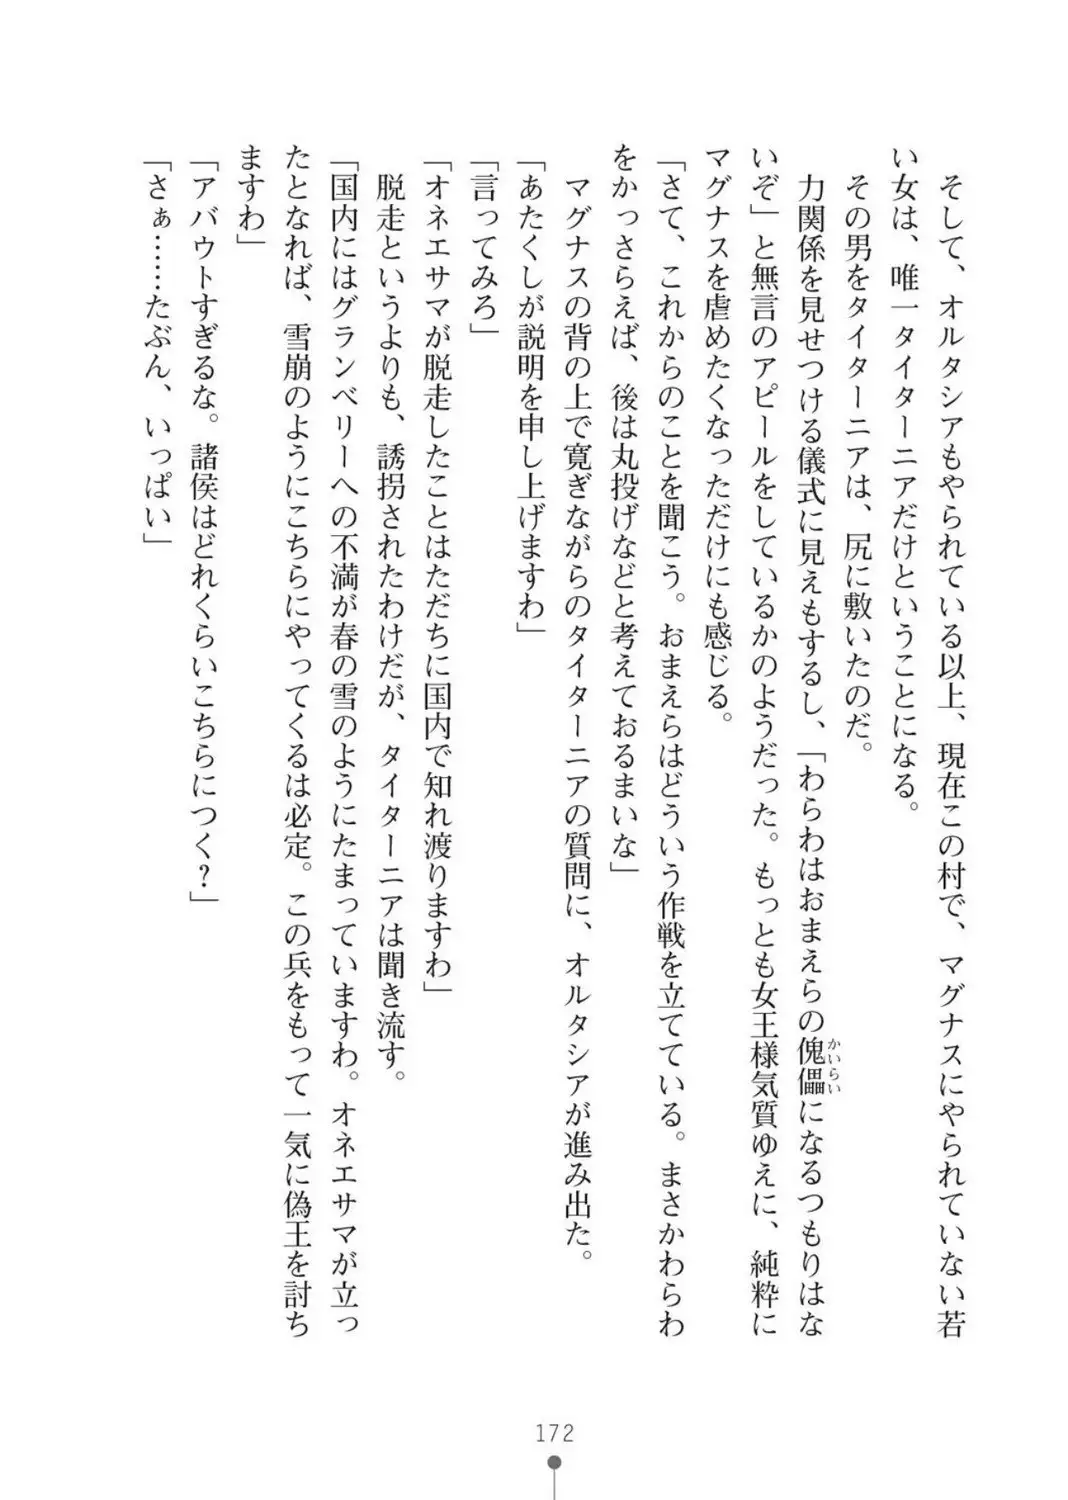 そして、オルタシアもやられている以上、現在この村で、マグナスにやられていない若
い女は、唯一タイターニアだけということになる。
その男をタイターニアは、尻に敷いたのだ。
力関係を見せつける儀式に見えもするし、「わらわはおまえらの傀儡になるつもりはな
かいらい
いぞ」と無言のアピールをしているかのようだった。もっとも女王様気質ゆえに、純粋に
マグナスを虐めたくなっただけにも感じる。
「さて、これからのことを聞こう。おまえらはどういう作戦を立てている。まさかわらわ
をかっさらえば、後は丸投げなどと考えておるまいな」
マグナスの背の上で寛ぎながらのタイターニアの質問に、オルタシアが進み出た。
「あたくしが説明を申し上げますわ」
「言ってみろ」
「オネエサマが脱走したことはただちに国内で知れ渡りますわ」
脱走というよりも、誘拐されたわけだが、タイターニアは聞き流す。
「国内にはグランベリーへの不満が春の雪のようにたまっていますわ。オネエサマが立っ
たとなれば、雪崩のようにこちらにやってくるは必定。この兵をもって一気に偽王を討ち
ますわ」
「アバウトすぎるな。諸侯はどれくらいこちらにつく?」
「さぁ……たぶん、いっぱい」
172